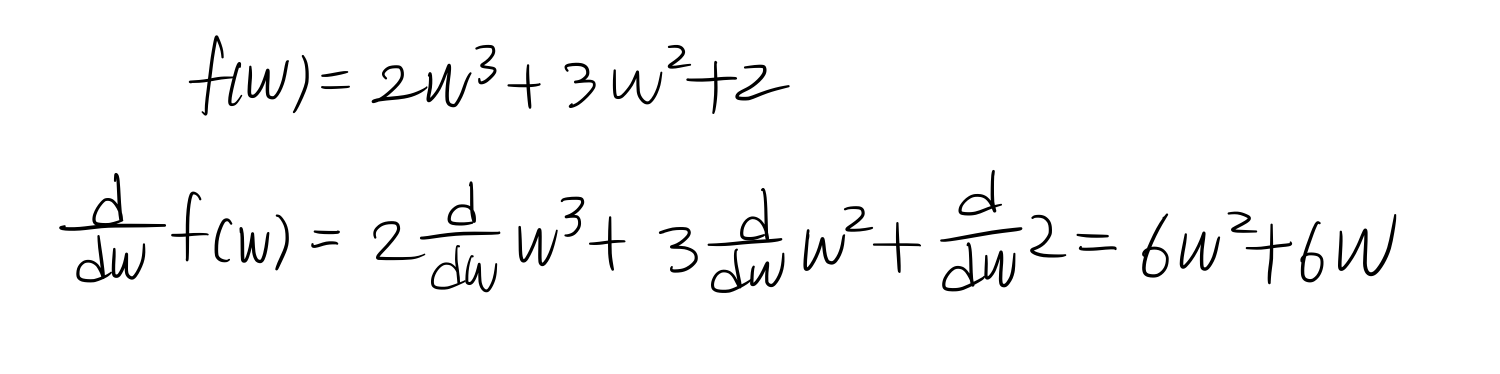 f(w) = 2w³ + 3w² + 2
d/dw f(w) = 2 d/dw w³ + 3 d/dw w² + d/dw 2 = 6w² + 6w